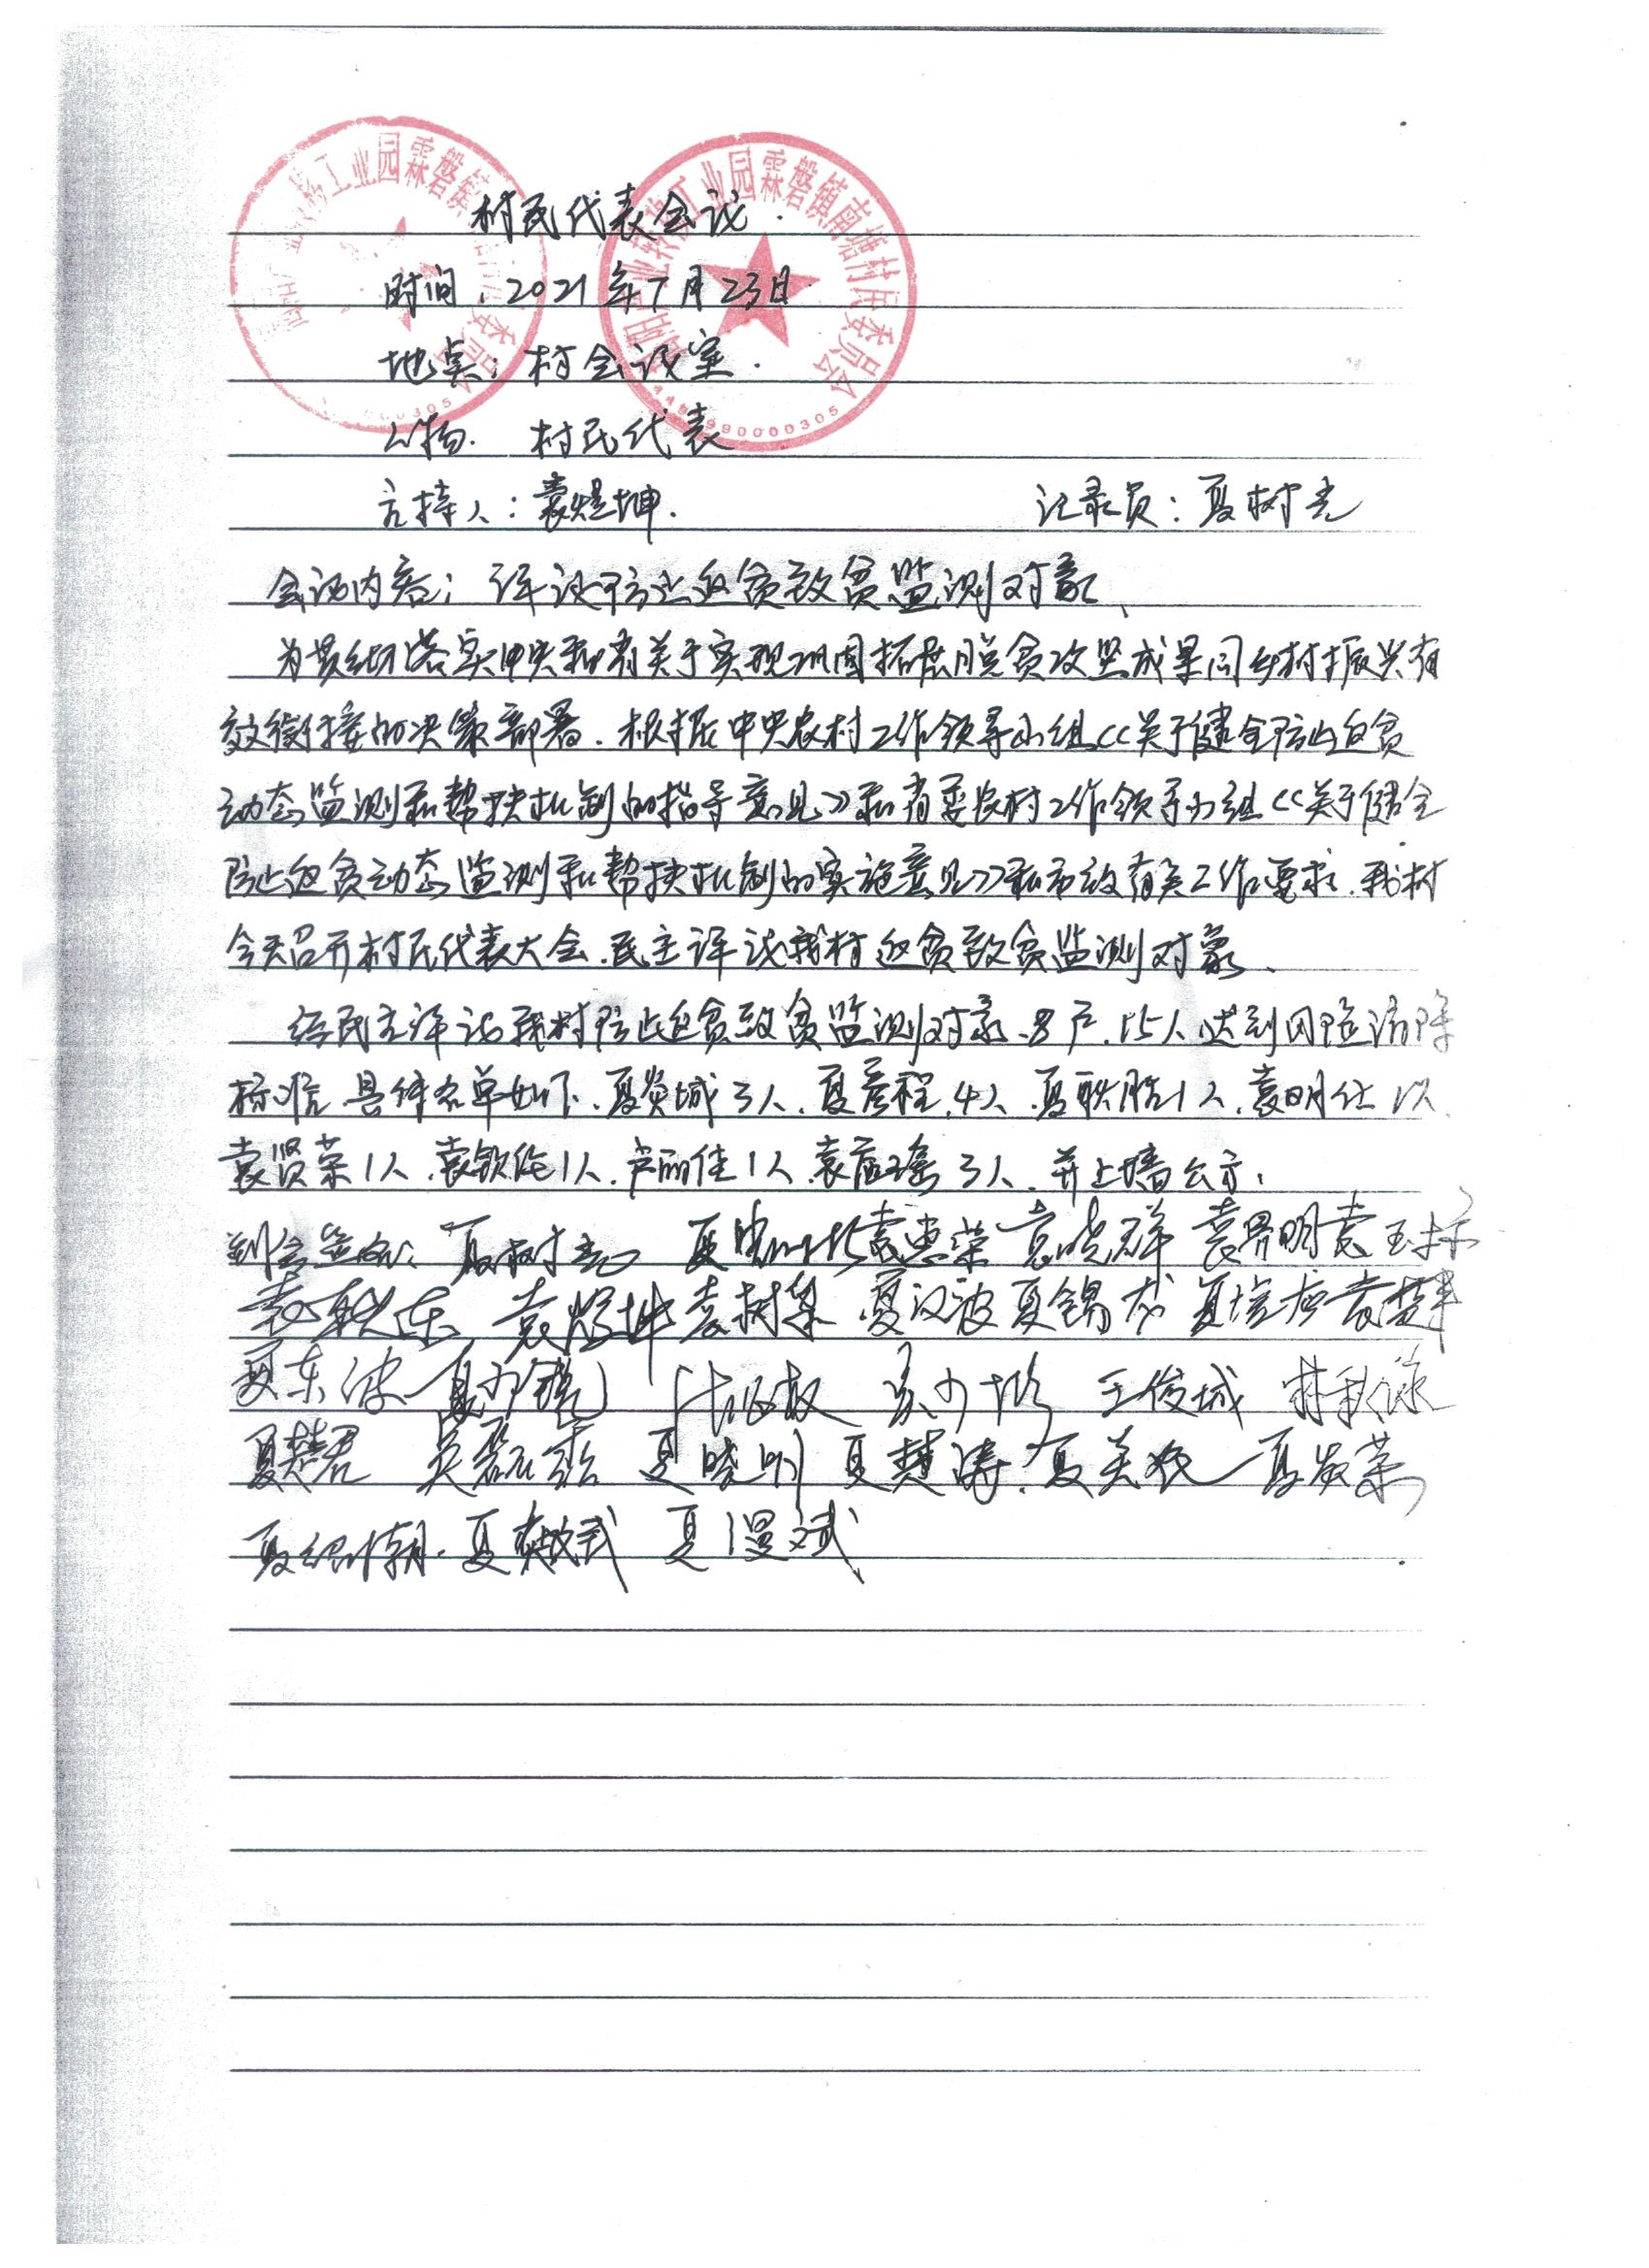 村民代表会议.
时间:2021年7月23日
地点:村会议室.
村民代表
主持人:袁煜坤.
记录员:夏树光
会议内容:评议防止返贫致贫监测对象、
为贯彻落实中央和省关于实现巩固拓展脱贫攻坚成果同乡村振兴有
效衔接的决策部署.根据中央农村工作领导小组<<关于健全防止返贫
动态监测和帮扶机制的指导意见>>和省委农村工作领导小组<<关于健全
防止返贫动态监测和帮扶机制的实施意见>>和市的有关工作要求.我村
今天召开村民代表大会.民主评议我村返贫致贫监测对象、
经民主评议我村防止返贫致贫监测对象、8户.15人达到风险消除
标准.具体名单如下、夏炎城3人.夏彦程.4人.夏耿浩1人.袁明仕1人.
袁贤荣1人.袁钦伦1人.卢丽佳1人.袁应瑶3人.并上墙公示.
到会签名:夏树光 袁惠荣 袁晓群 袁界明 袁玉
袁耿东 袁煜坤 袁树集 夏汉波 夏锡龙 夏
夏东波 王俊城 林
夏楚君 吴 夏晓明 夏楚涛.夏美 夏炎荣
夏绍朝.夏 武 夏漫斌
工业园霖磐镇南塘村民委员会
0000305
工业园霖磐镇
委员会
0305